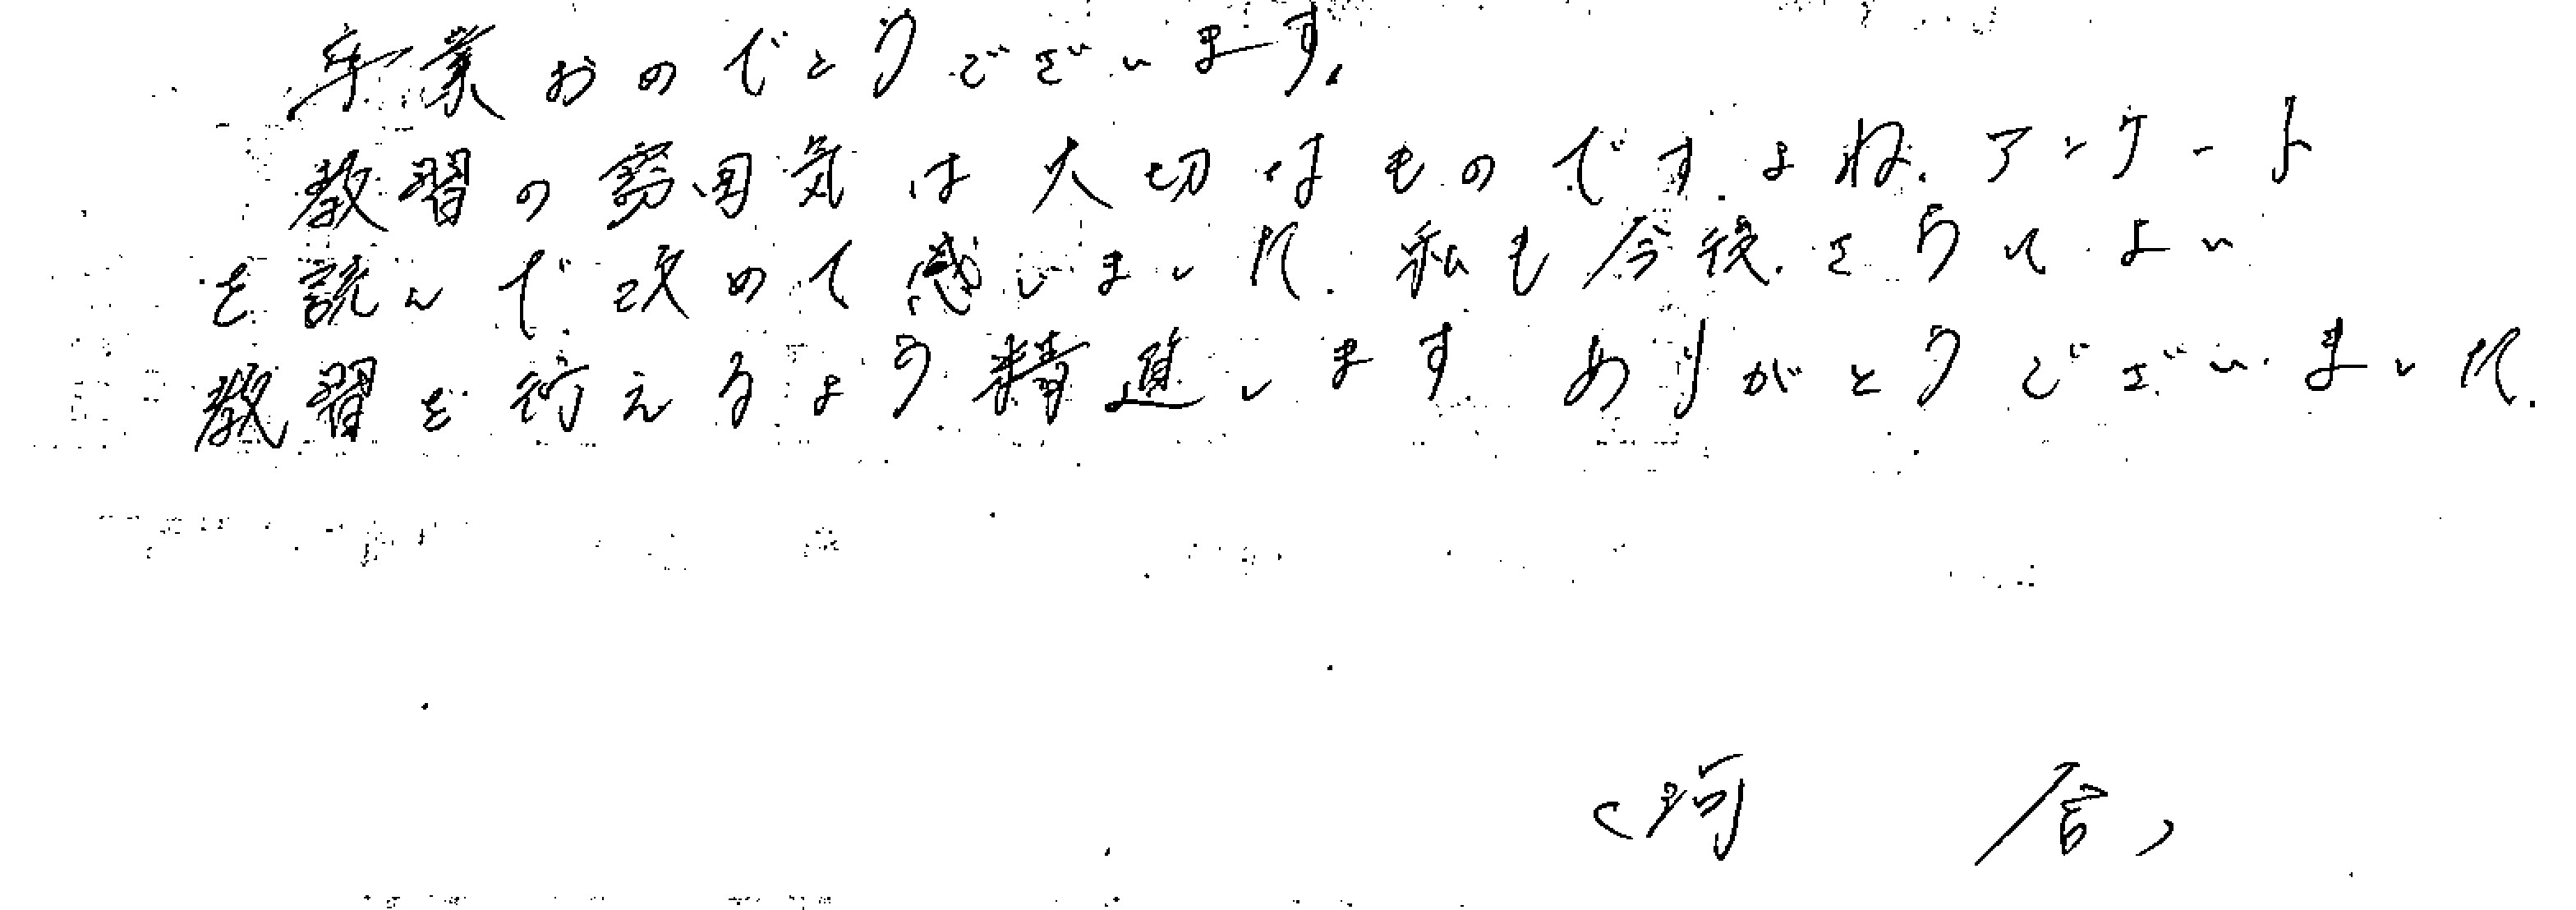 卒業おめでとうございます。
教習の雰囲気は大切なものですよね。アンケート
を読んで改めて感じました。私も今後さらによい
教習を行えるよう精進します ありがとうございました。